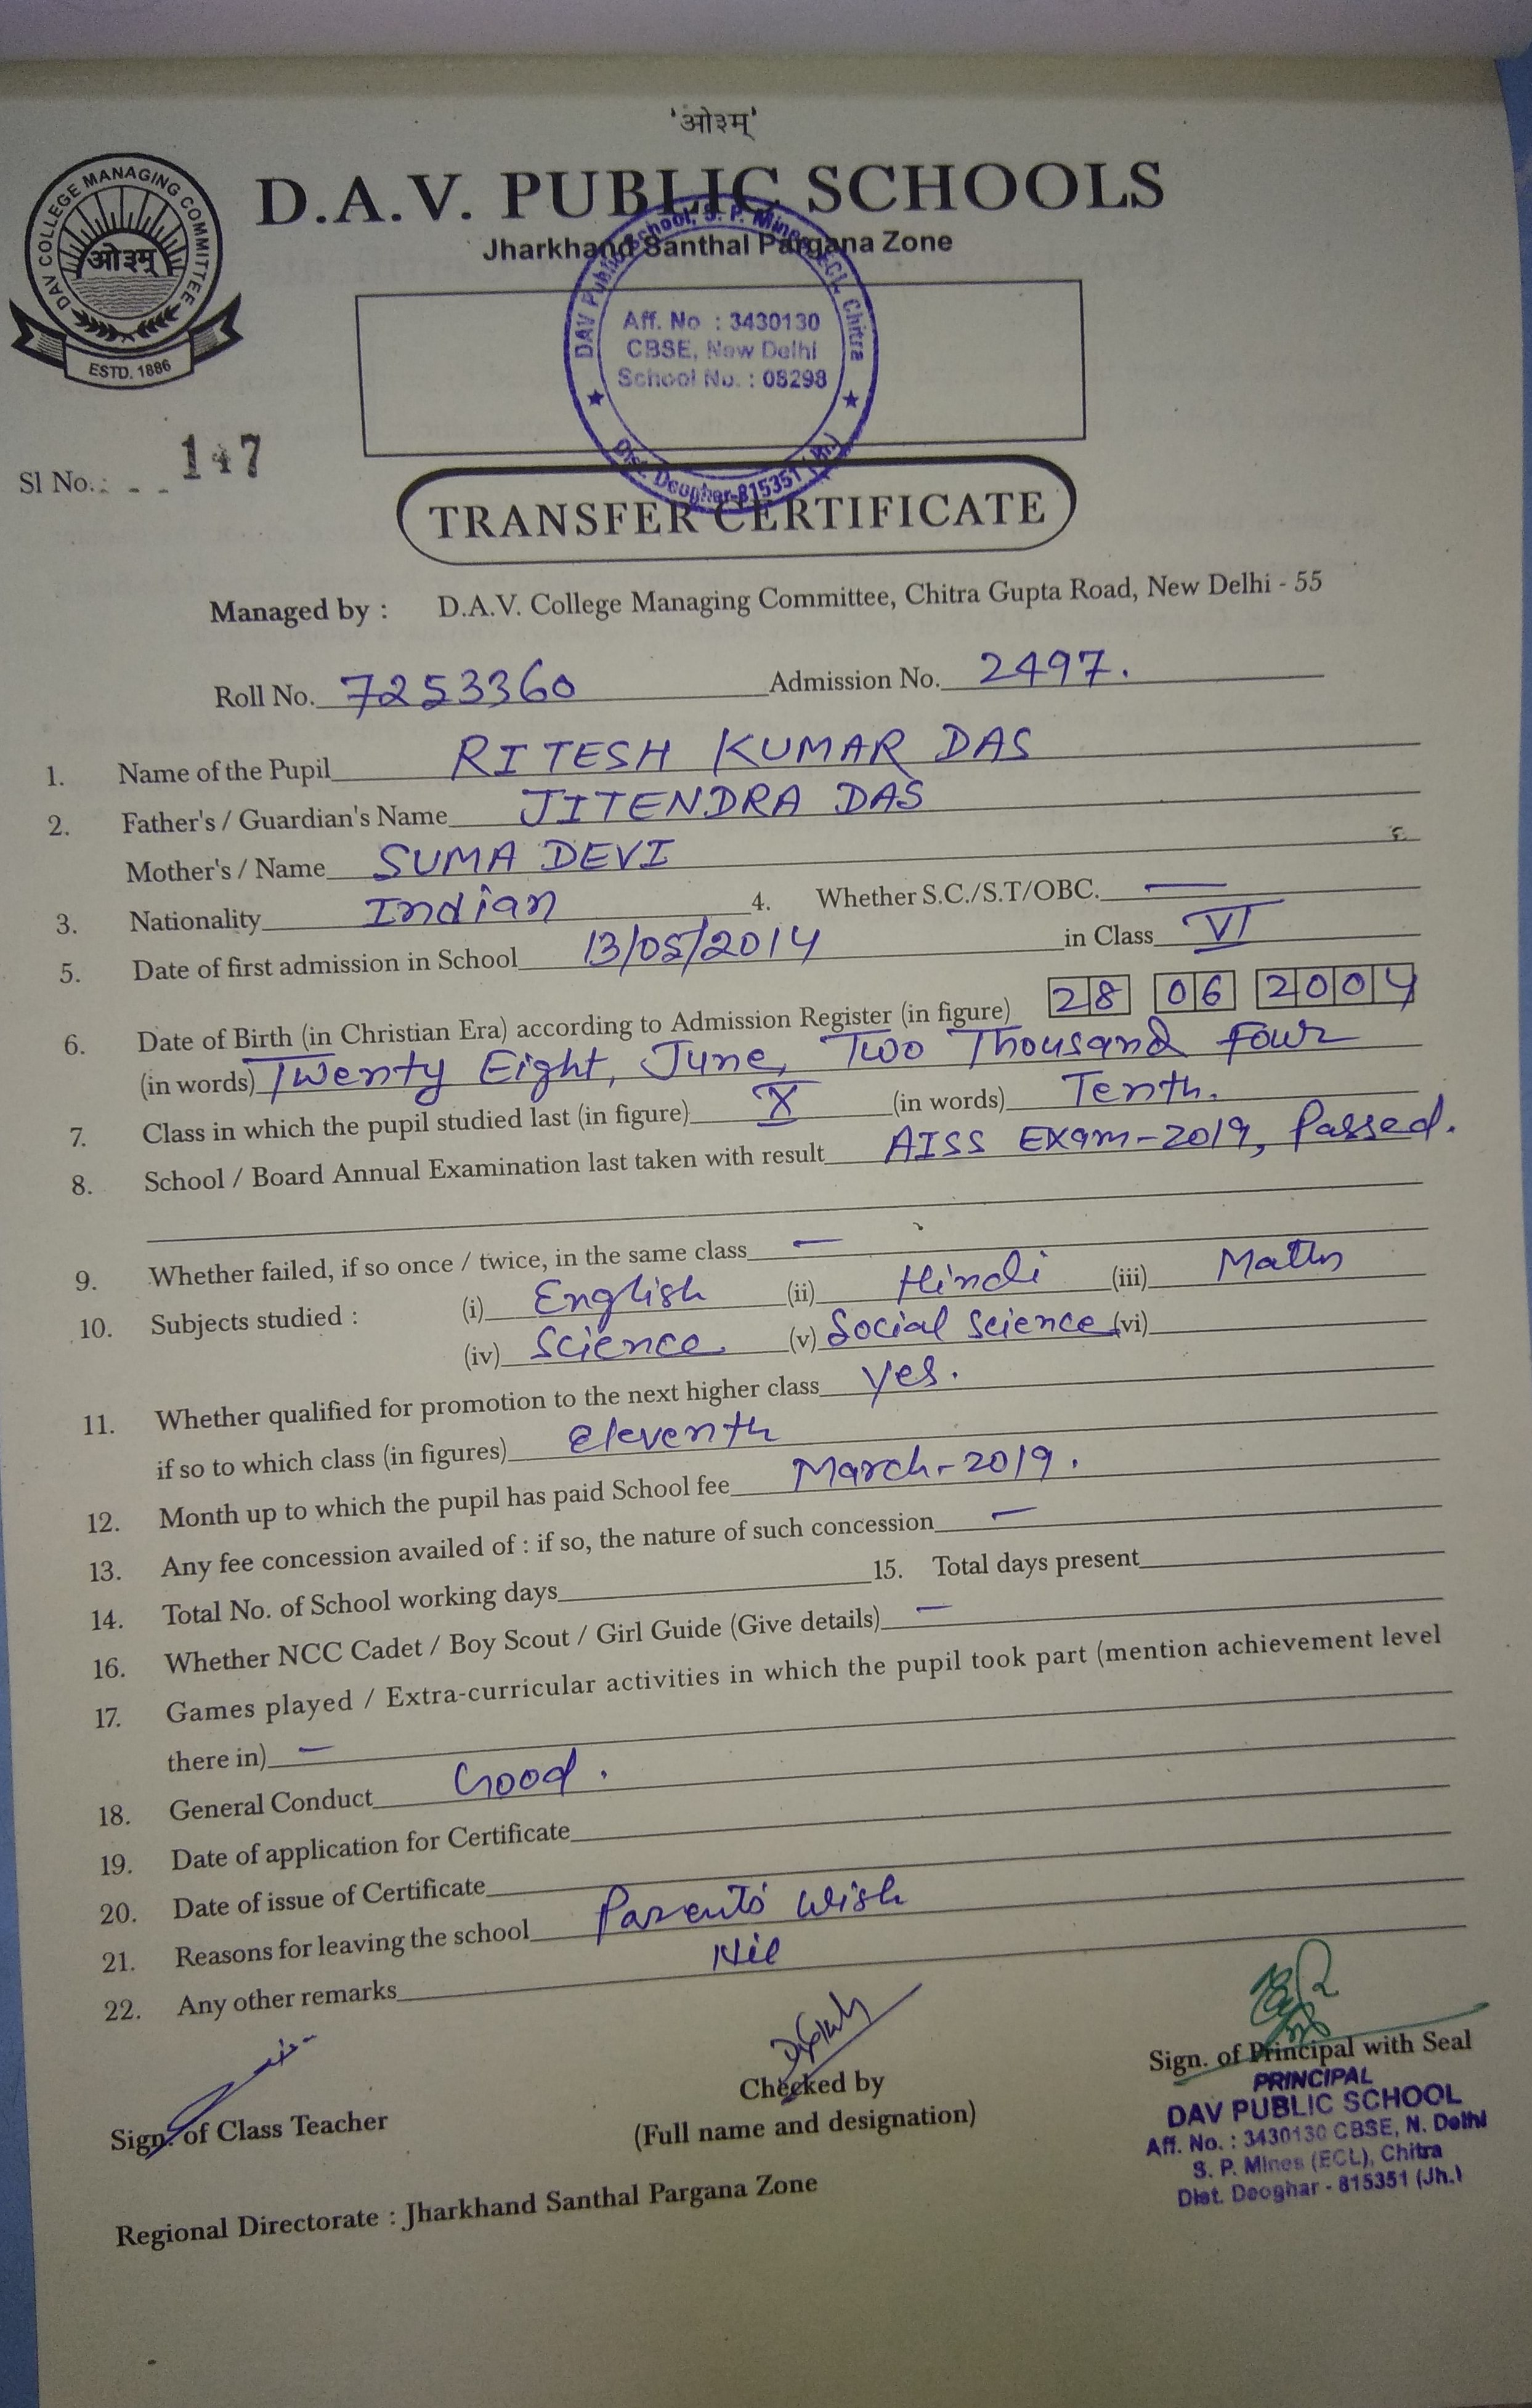 'ओ३म्'
DAV COLLEGE MANAGING COMMITTEE
ओ३म्
ESTD. 1886
D.A.V. PUBLIC SCHOOLS
Jharkhand Santhal Pargana Zone
DAV Public School, S. P. Mines ECL, Chitra
Aff. No : 3430130
CBSE, New Delhi
School No. : 08298
Dist. Deoghar-815351 (Jh.)
Sl No.: - - 147
TRANSFER CERTIFICATE
Managed by : D.A.V. College Managing Committee, Chitra Gupta Road, New Delhi - 55
Roll No. 7253360 Admission No. 2497.
1. Name of the Pupil RITESH KUMAR DAS
2. Father's / Guardian's Name JITENDRA DAS
Mother's / Name SUMA DEVI
3. Nationality Indian 4. Whether S.C./S.T/OBC. —
5. Date of first admission in School 13/05/2014 in Class VI
6. Date of Birth (in Christian Era) according to Admission Register (in figure) 28 06 2004
(in words) Twenty Eight, June, Two Thousand Four
7. Class in which the pupil studied last (in figure) X (in words) Tenth.
8. School / Board Annual Examination last taken with result AISS Exam-2019, Passed.
9. Whether failed, if so once / twice, in the same class —
10. Subjects studied : (i) English (ii) Hindi (iii) Maths
(iv) Science (v) Social Science (vi)
11. Whether qualified for promotion to the next higher class yes.
if so to which class (in figures) Eleventh
12. Month up to which the pupil has paid School fee March-2019.
13. Any fee concession availed of : if so, the nature of such concession —
14. Total No. of School working days 15. Total days present
16. Whether NCC Cadet / Boy Scout / Girl Guide (Give details) —
17. Games played / Extra-curricular activities in which the pupil took part (mention achievement level
there in) —
18. General Conduct Good.
19. Date of application for Certificate
20. Date of issue of Certificate
21. Reasons for leaving the school Parents' Wish
22. Any other remarks Nil
Sign. of Class Teacher
Checked by
(Full name and designation)
Sign. of Principal with Seal
PRINCIPAL
DAV PUBLIC SCHOOL
Aff. No. : 3430130 CBSE, N. Delhi
S. P. Mines (ECL), Chitra
Dist. Deoghar - 815351 (Jh.)
Regional Directorate : Jharkhand Santhal Pargana Zone